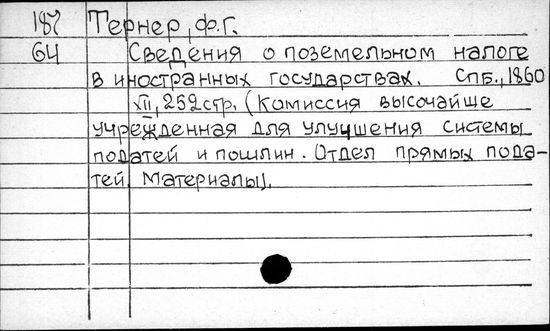 187 Тернер, Ф.Г.
64 Сведения о поземельном налоге
в иностранных государствах. Спб., 1860
XII, 252 стр. (Комиссия высочайше
учрежденная для улучшения системы
податей и пошлин. Отдел прямых пода-
тей. Материалы).